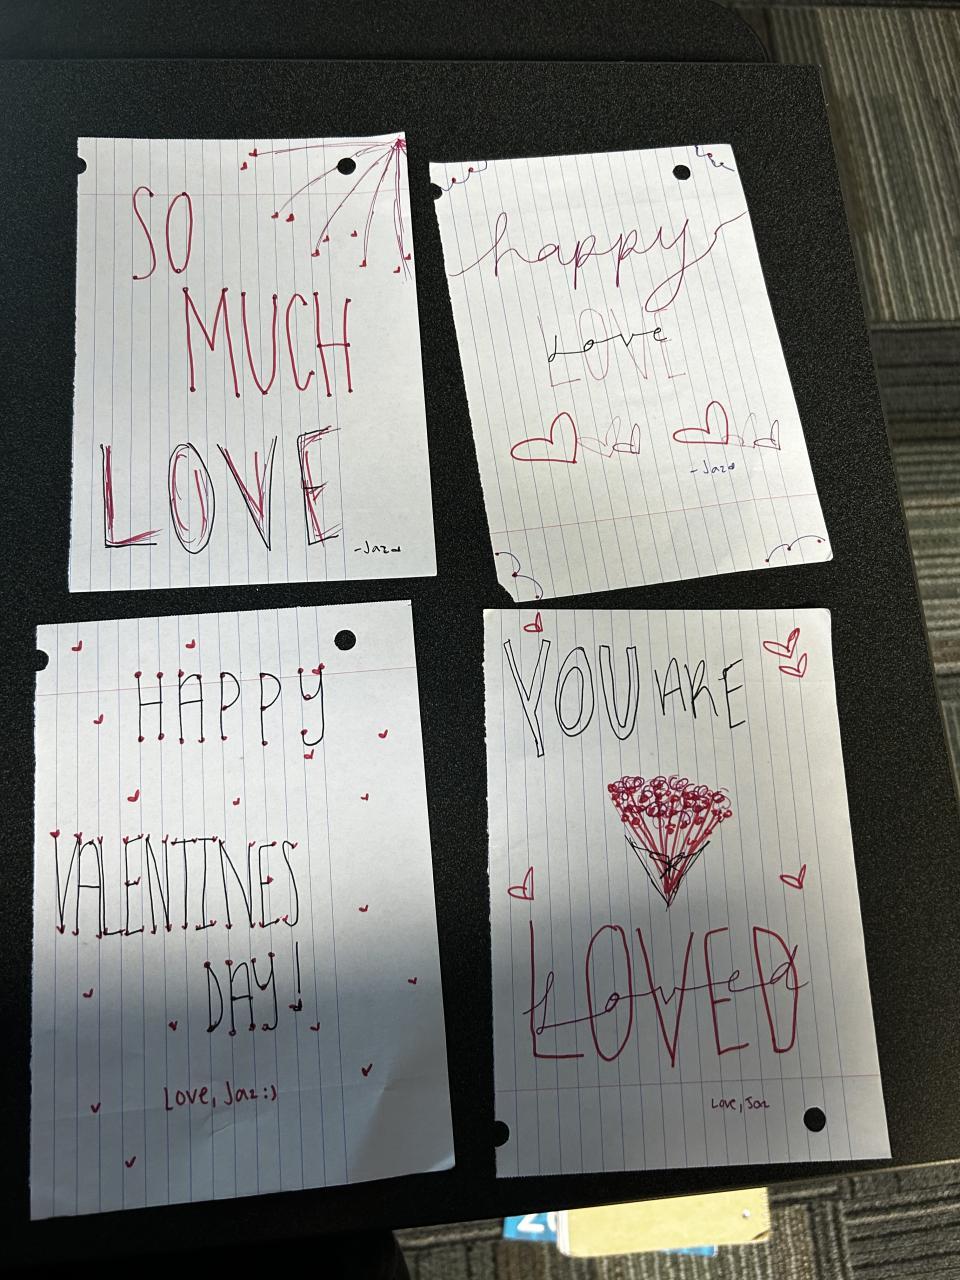 SO
MUCH
LOVE
-Jaz
happy
LOVE
Love
-Jaz
HAPPY
VALENTINES
DAY!
Love, Jaz:)
YOU ARE
LOVED
Loved
Love, Jaz